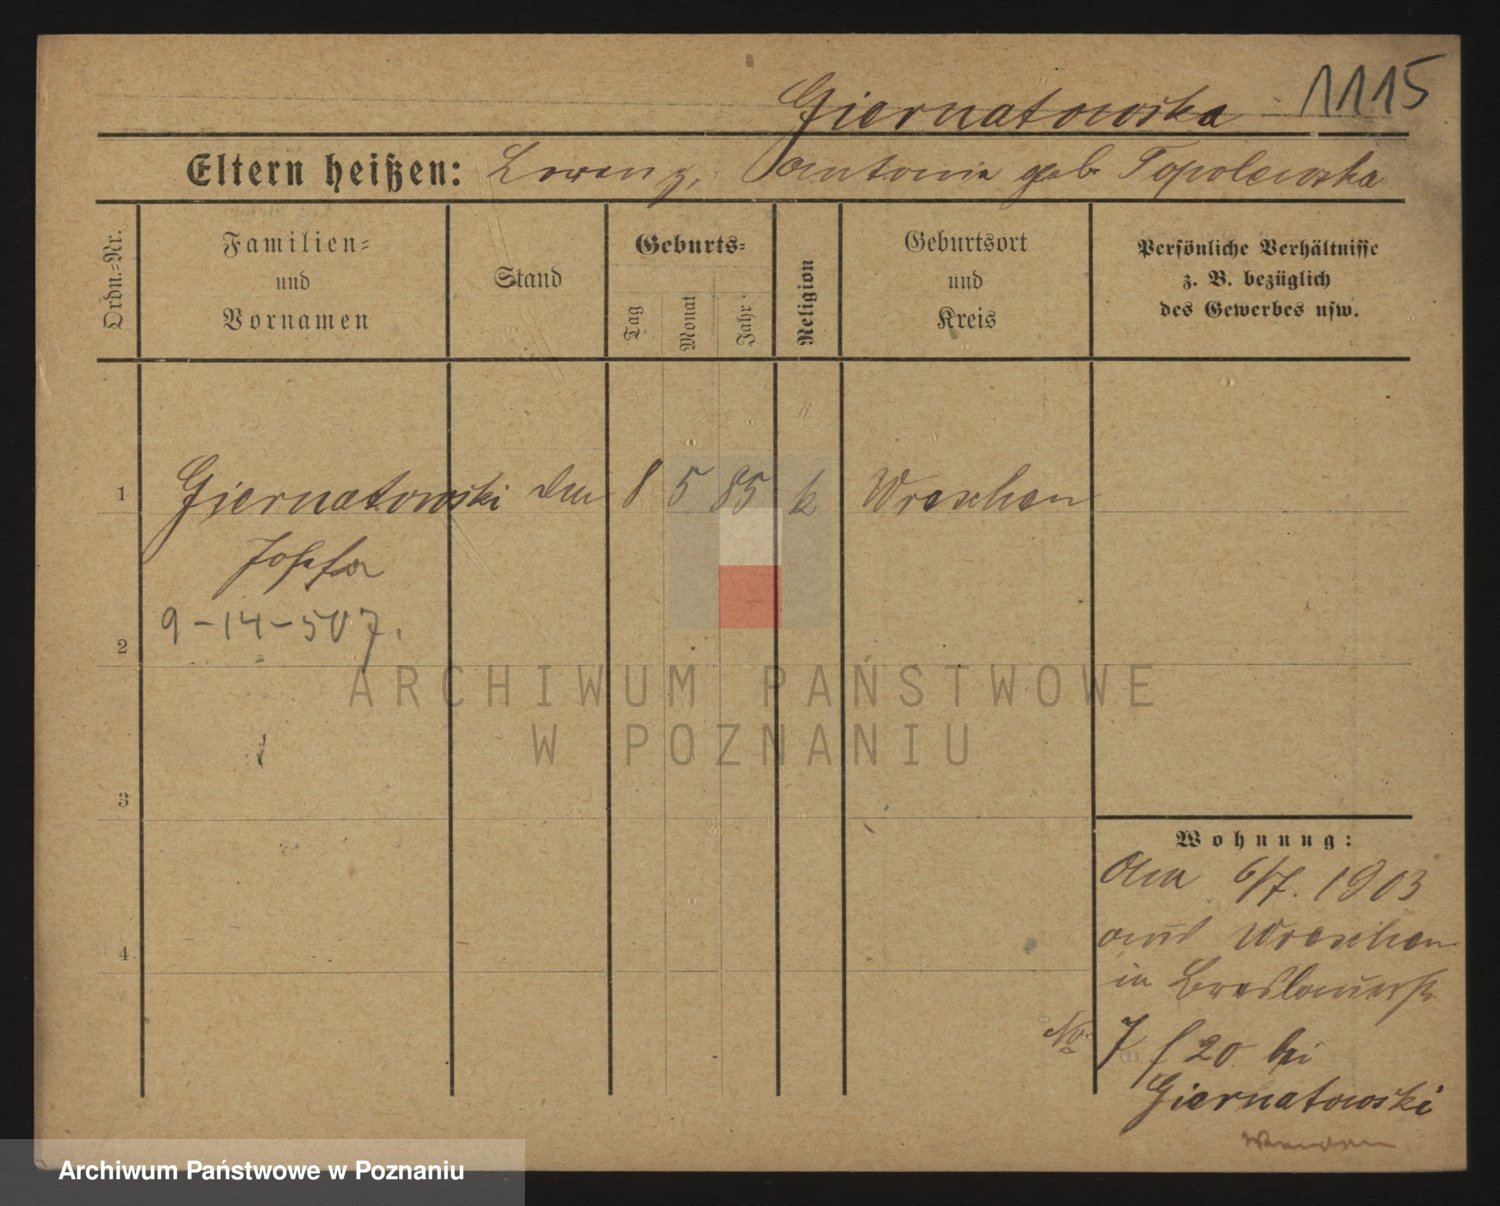 Giernatowska 1115
Eltern heißen: Lorenz, Antonia geb Topolewska
Ordn.-Nr.
Familien-
und
Vornamen
Stand
Geburts-
Tag
Monat
Jahr
Religion
Geburtsort
und
Kreis
Persönliche Verhältnisse
z. B. bezüglich
des Gewerbes usw.
1 Giernatowski den 8 5 85 k Wreschen
Josefa
9-14-507.
2
3
4
Wohnung:
6/7. 1903
aus Wreschen
in Breslauerstr
No 7 / 20 bei
Giernatowski
Wenden
ARCHIWUM PAŃSTWOWE
W POZNANIU
Archiwum Państwowe w Poznaniu